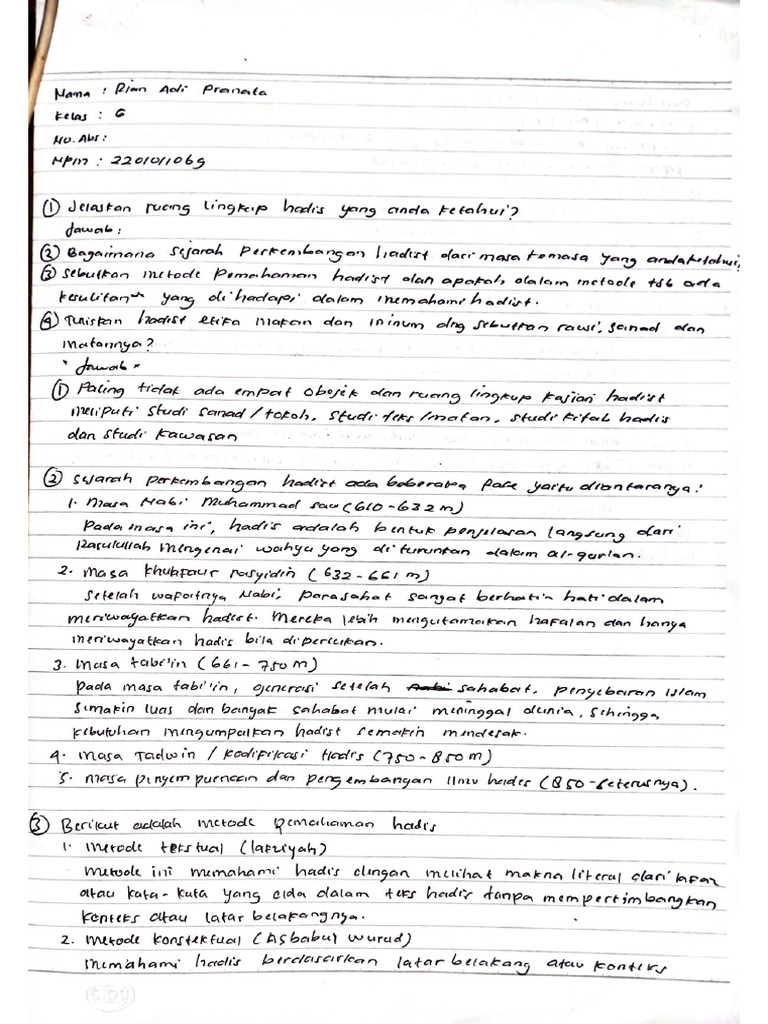 Nama : Rian Adi Pranata
Kelas : G
No. Abs :
Npm : 2201011069
① Jelaskan ruang lingkup hadis yang anda ketahui?
Jawab :
② Bagaimana sejarah perkembangan hadist dari masa kemasa yang andaketahui,
③ Sebutkan metode pemahaman hadist dan apakah dalam metode tsb ada
kesulitan yang di hadapi dalam memahami hadist.
④ Tuliskan hadist etika makan dan minum dng sebutkan rawi, sanad dan
matannya?
" Jawab "
① Paling tidak ada empat obejik dan ruang lingkup kajian hadist
meliputi studi sanad/tokoh, studi teks/matan, studi kitab hadis
dan studi kawasan
② Sejarah perkembangan hadist ada beberapa fase yaitu diantaranya :
1. Masa Nabi Muhammad saw (610-632 m)
Pada masa ini, hadis adalah bentuk penjelasan langsung dari
Rasulullah mengenai wahyu yang di turunkan dalam al-qur'an.
2. Masa Khulafaur rasyidin (632-661 m)
Setelah wafatnya Nabi, para sahat sangat berhati-hati dalam
meriwayatkan hadist. Mereka lebih mengutamakan hafalan dan hanya
meriwayatkan hadis bila diperlukan.
3. Masa tabi'in (661-750 m)
pada masa tabi'in, generasi setelah sahabat, penyebaran islam
semakin luas dan banyak sahabat mulai meninggal dunia, sehingga
kebutuhan mengumpulkan hadist semakin mendesak.
4. Masa Tadwin / kodifikasi Hadis (750-850 m)
5. Masa penyempurnaan dan pengembangan Ilmu hades (850-seterusnya).
③ Berikut adalah metode pemahaman hadis
1. metode tekstual (lafziyah)
Metode ini memahami hadis dengan melihat makna literal dari lafaz
atau kata-kata yang ada dalam teks hadis tanpa mempertimbangkan
konteks atau latar belakangnya.
2. Metode konstektual (Asbabul wurud)
memahami hadis berdasarkan latar belakang atau konteks
SDU